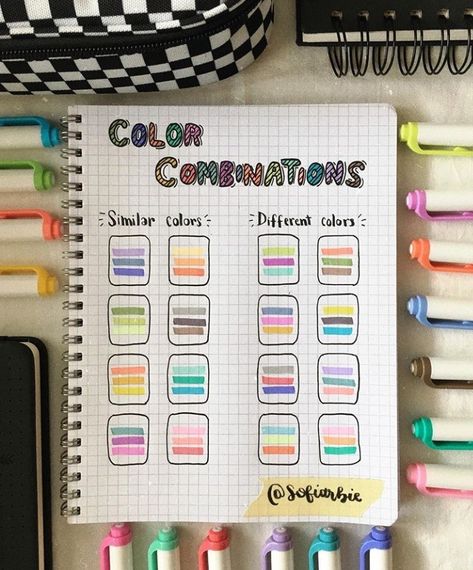 Color
Combinations
Similar colors
Different colors
@sofiarbie